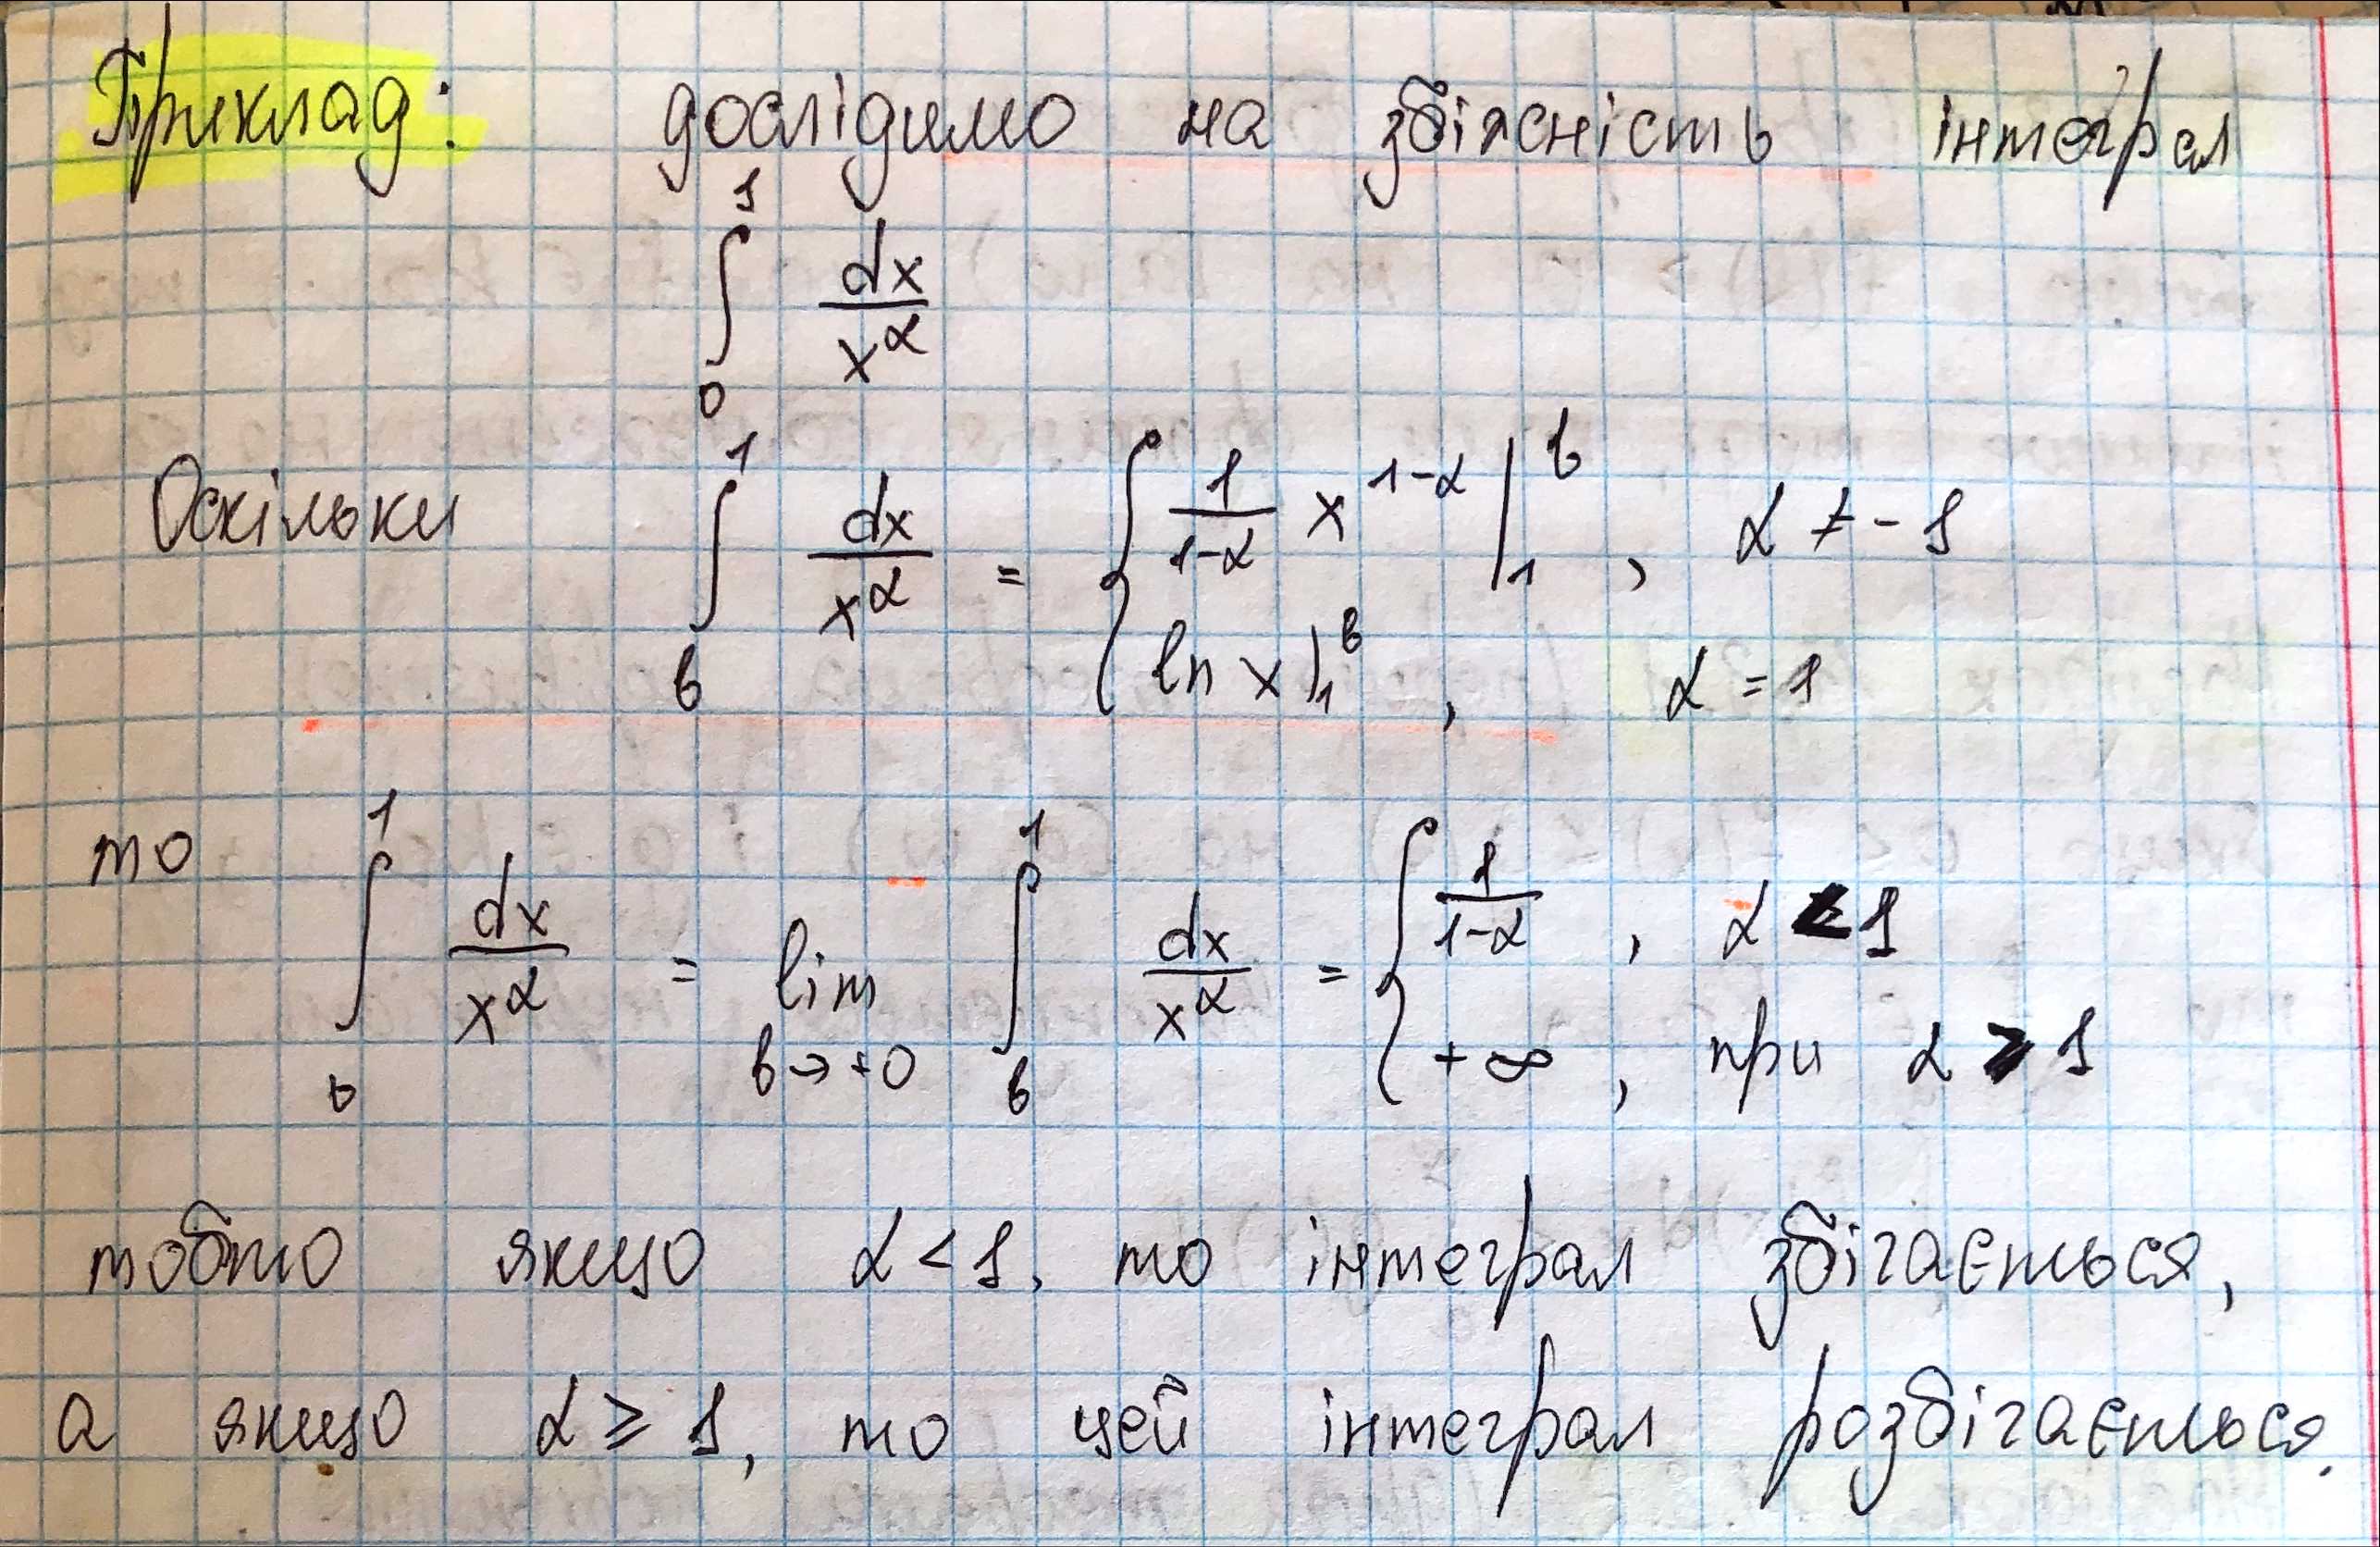 Приклад: дослідимо на збіжність інтеграл
∫₀¹ dx/x^α
Оскільки ∫_b^1 dx/x^α = { 1/(1-α) x^(1-α) |_1^b , α ≠ -1
ln x |_1^b , α = 1
то ∫_b^1 dx/x^α = lim_(b→+0) ∫_b^1 dx/x^α = { 1/(1-α) , α < 1
+∞ , при α ⩾ 1
тобто якщо α < 1, то інтеграл збігається,
а якщо α ⩾ 1, то цей інтеграл розбігається.